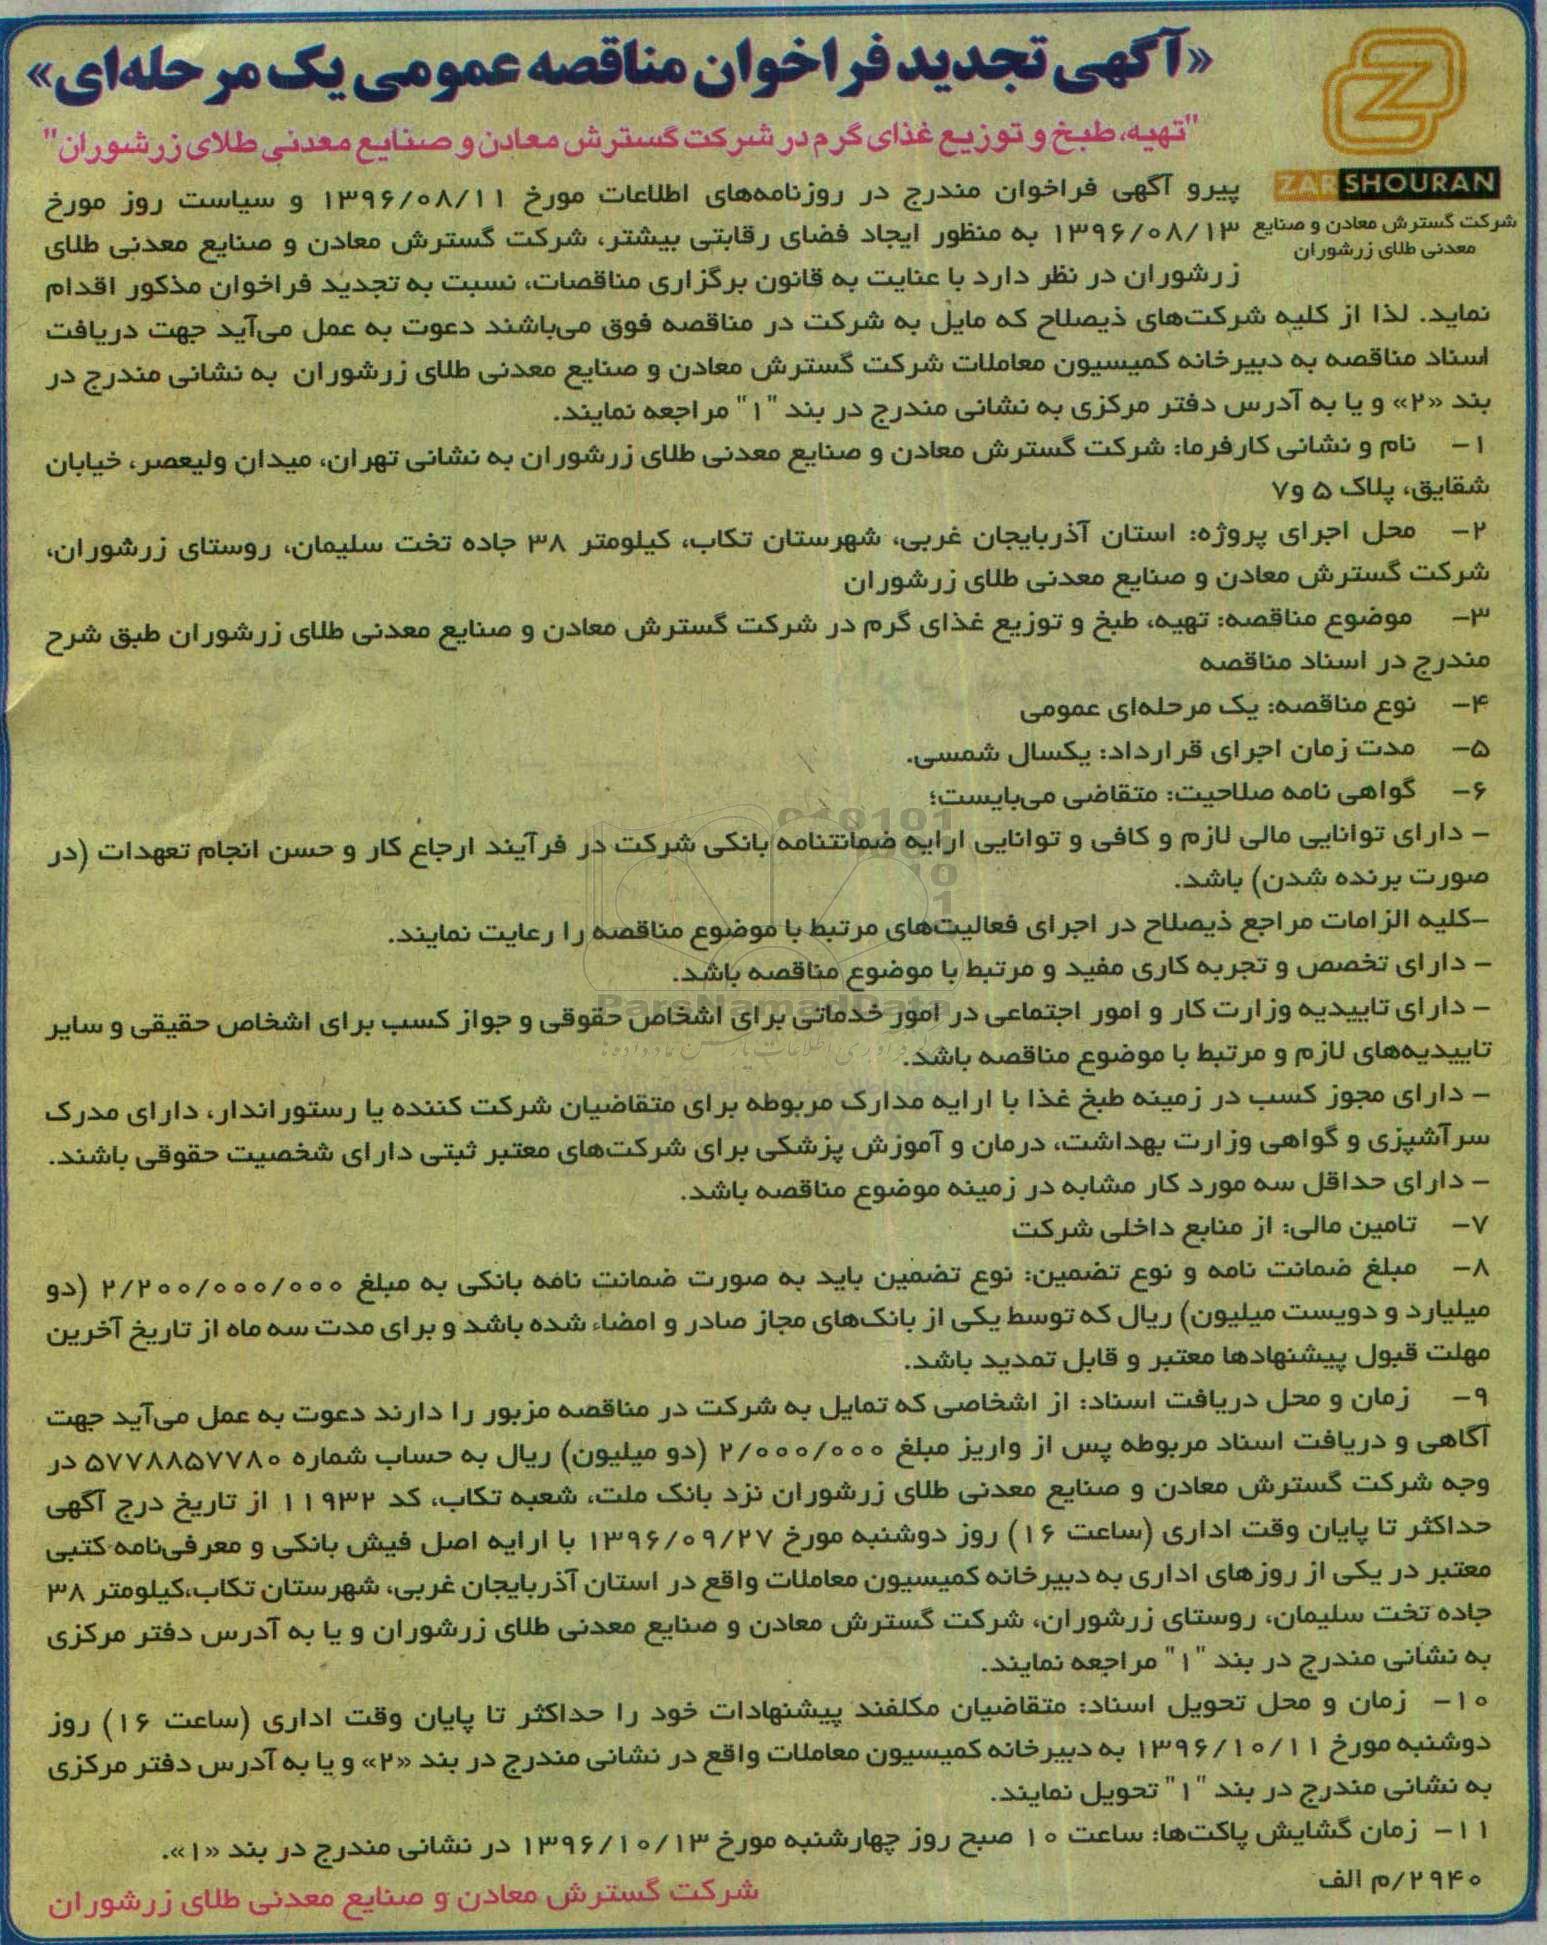 «آگهی تجدید فراخوان مناقصه عمومی یک مرحله‌ای»
"تهیه، طبخ و توزیع غذای گرم در شرکت گسترش معادن و صنایع معدنی طلای زرشوران"
ZARSHOURAN
شرکت گسترش معادن و صنایع
معدنی طلای زرشوران
پیرو آگهی فراخوان مندرج در روزنامه‌های اطلاعات مورخ ۱۳۹۶/۰۸/۱۱ و سیاست روز مورخ
۱۳۹۶/۰۸/۱۳ به منظور ایجاد فضای رقابتی بیشتر، شرکت گسترش معادن و صنایع معدنی طلای
زرشوران در نظر دارد با عنایت به قانون برگزاری مناقصات، نسبت به تجدید فراخوان مذکور اقدام
نماید. لذا از کلیه شرکت‌های ذیصلاح که مایل به شرکت در مناقصه فوق می‌باشند دعوت به عمل می‌آید جهت دریافت
اسناد مناقصه به دبیرخانه کمیسیون معاملات شرکت گسترش معادن و صنایع معدنی طلای زرشوران به نشانی مندرج در
بند «۲» و یا به آدرس دفتر مرکزی به نشانی مندرج در بند "۱" مراجعه نمایند.
۱- نام و نشانی کارفرما: شرکت گسترش معادن و صنایع معدنی طلای زرشوران به نشانی تهران، میدان ولیعصر، خیابان
شقایق، پلاک ۵ و۷
۲- محل اجرای پروژه: استان آذربایجان غربی، شهرستان تکاب، کیلومتر ۳۸ جاده تخت سلیمان، روستای زرشوران،
شرکت گسترش معادن و صنایع معدنی طلای زرشوران
۳- موضوع مناقصه: تهیه، طبخ و توزیع غذای گرم در شرکت گسترش معادن و صنایع معدنی طلای زرشوران طبق شرح
مندرج در اسناد مناقصه
۴- نوع مناقصه: یک مرحله‌ای عمومی
۵- مدت زمان اجرای قرارداد: یکسال شمسی.
۶- گواهی نامه صلاحیت: متقاضی می‌بایست؛
- دارای توانایی مالی لازم و کافی و توانایی ارایه ضمانتنامه بانکی شرکت در فرآیند ارجاع کار و حسن انجام تعهدات (در
صورت برنده شدن) باشد.
-کلیه الزامات مراجع ذیصلاح در اجرای فعالیت‌های مرتبط با موضوع مناقصه را رعایت نمایند.
- دارای تخصص و تجربه کاری مفید و مرتبط با موضوع مناقصه باشد.
ParsNamadData
- دارای تاییدیه وزارت کار و امور اجتماعی در امور خدماتی برای اشخاص حقوقی و جواز کسب برای اشخاص حقیقی و سایر
تاییدیه‌های لازم و مرتبط با موضوع مناقصه باشد.
- دارای مجوز کسب در زمینه طبخ غذا با ارایه مدارک مربوطه برای متقاضیان شرکت کننده یا رستوراندار، دارای مدرک
سرآشپزی و گواهی وزارت بهداشت، درمان و آموزش پزشکی برای شرکت‌های معتبر ثبتی دارای شخصیت حقوقی باشند.
- دارای حداقل سه مورد کار مشابه در زمینه موضوع مناقصه باشد.
۷- تامین مالی: از منابع داخلی شرکت
۸- مبلغ ضمانت نامه و نوع تضمین: نوع تضمین باید به صورت ضمانت نامه بانکی به مبلغ ۲/۲۰۰/۰۰۰/۰۰۰ (دو
میلیارد و دویست میلیون) ریال که توسط یکی از بانک‌های مجاز صادر و امضاء شده باشد و برای مدت سه ماه از تاریخ آخرین
مهلت قبول پیشنهادها معتبر و قابل تمدید باشد.
۹- زمان و محل دریافت اسناد: از اشخاصی که تمایل به شرکت در مناقصه مزبور را دارند دعوت به عمل می‌آید جهت
آگاهی و دریافت اسناد مربوطه پس از واریز مبلغ ۲/۰۰۰/۰۰۰ (دو میلیون) ریال به حساب شماره ۵۷۷۸۸۵۷۷۸۰ در
وجه شرکت گسترش معادن و صنایع معدنی طلای زرشوران نزد بانک ملت، شعبه تکاب، کد ۱۱۹۳۲ از تاریخ درج آگهی
حداکثر تا پایان وقت اداری (ساعت ۱۶) روز دوشنبه مورخ ۱۳۹۶/۰۹/۲۷ با ارایه اصل فیش بانکی و معرفی‌نامه کتبی
معتبر در یکی از روزهای اداری به دبیرخانه کمیسیون معاملات واقع در استان آذربایجان غربی، شهرستان تکاب،کیلومتر ۳۸
جاده تخت سلیمان، روستای زرشوران، شرکت گسترش معادن و صنایع معدنی طلای زرشوران و یا به آدرس دفتر مرکزی
به نشانی مندرج در بند "۱" مراجعه نمایند.
۱۰- زمان و محل تحویل اسناد: متقاضیان مکلفند پیشنهادات خود را حداکثر تا پایان وقت اداری (ساعت ۱۶) روز
دوشنبه مورخ ۱۳۹۶/۱۰/۱۱ به دبیرخانه کمیسیون معاملات واقع در نشانی مندرج در بند «۲» و یا به آدرس دفتر مرکزی
به نشانی مندرج در بند "۱" تحویل نمایند.
۱۱- زمان گشایش پاکت‌ها: ساعت ۱۰ صبح روز چهارشنبه مورخ ۱۳۹۶/۱۰/۱۳ در نشانی مندرج در بند «۱».
۲۹۴۰/م الف
شرکت گسترش معادن و صنایع معدنی طلای زرشوران